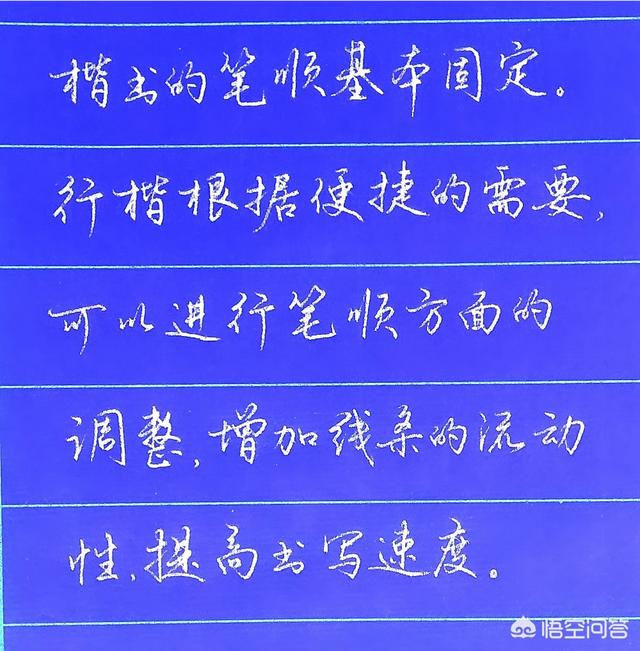 楷书的笔顺基本固定。
行楷根据便捷的需要,
可以进行笔顺方面的
调整,增加线条的流动
性,提高书写速度。
悟空问答